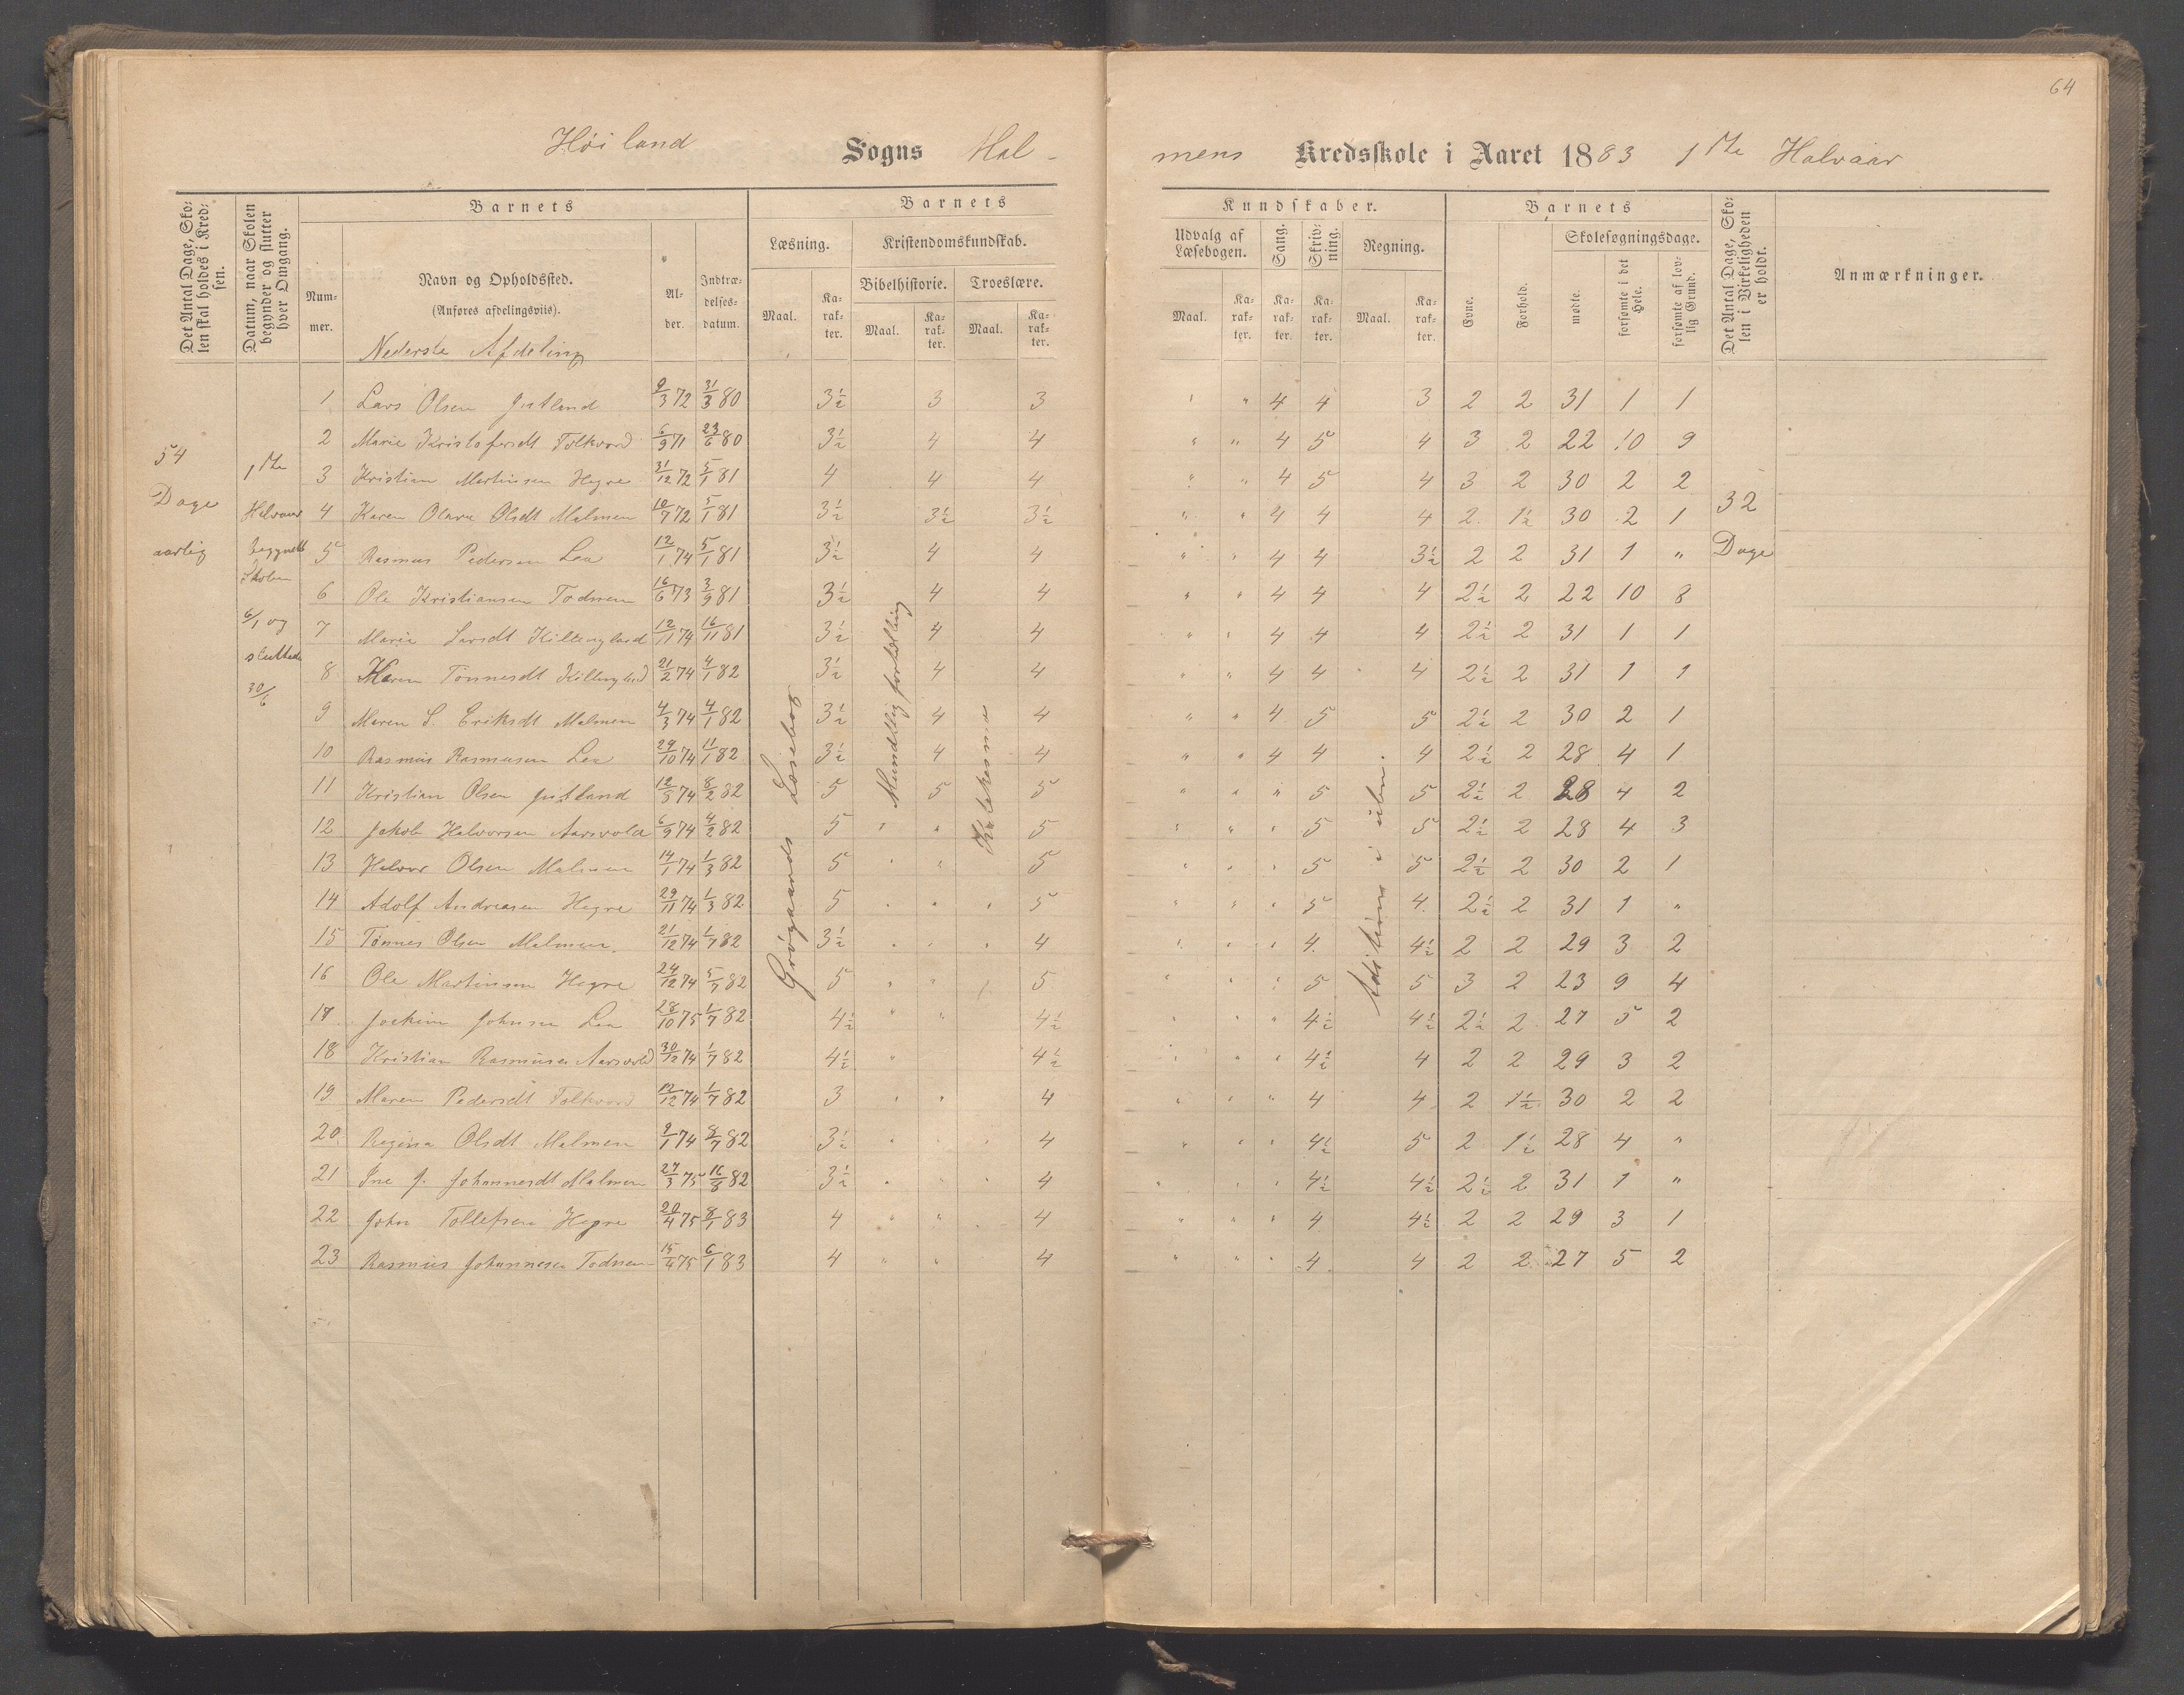 64
Høiland Sogns Hal-mens Kredsskole i Aaret 1883 1ste Halvaar
Det Antal Dage, Skolen skal holdes i Kredsen.
Datum, naar Skolen begynder og slutter hver Omgang.
Barnets
Nummer.
Navn og Opholdssted.
(Anføres afdelingsviis).
Alder.
Indtrædelsesdatum.
Barnets Kundskaber.
Læsning. Maal. Karakter.
Kristendomskundskab.
Bibelhistorie. Maal. Karakter.
Troeslære. Maal. Karakter.
Udvalg af Læsebogen. Maal. Karakter.
Sang. Karakter.
Skrivning. Karakter.
Regning. Maal. Karakter.
Barnets
Evne.
Forhold.
Skolesøgningsdage.
mødte.
forsømte i det Hele.
forsømte af lovlig Grund.
Det Antal Dage, Skolen i Virkeligheden er holdt.
Anmærkninger.
Nederste Afdeling
54 Dage aarlig
1ste Halvaar begyndte Skolen 6/1 og sluttede 30/6
32 Dage
Mundtlig fortælling
Katekesme
1 Lars Olsen 9/3 72 31/3 80 3½ 3 3 " " 4 4 3 2 2 31 1 1
2 Marie Kristofersdt Folkvord 6/9 71 23/6 80 3½ 4 4 " " 4 5 4 3 2 22 10 9
3 Kristian Martinsen Hegre 31/12 72 5/1 81 4 4 4 " " 4 5 4 3 2 30 2 2
4 Karen Olava Olsdt Malmen 10/7 72 5/1 81 3½ 3½ 3½ " " 4 4 4 2 1½ 30 2 1
5 Rasmus Pedersen Lea 12/1 74 5/1 81 3½ 4 4 " " 4 4 3½ 2 2 31 1 "
6 Ole Kristiansen Todnem 16/6 73 3/9 81 3½ 4 4 " " 4 4 4 2½ 2 22 10 8
7 Maria Larsdt Killingland 12/11 74 16/11 81 3½ 4 4 " " 4 4 4 2½ 2 31 1 1
8 Karen Tönnesdt Killingland 21/2 74 4/1 82 3½ 4 4 " " 4 4 4 2½ 2 31 1 1
9 Maren S. Eriksdt Malmen 4/3 74 4/1 82 3½ 4 4 " " 4 5 5 2½ 2 30 2 1
10 Rasmus Rasmusen Lea 29/10 74 11/1 82 3½ 4 4 " " 4 4 4 2½ 2 28 4 1
11 Kristian Olsen 12/5 74 8/2 82 5 5 5 " " " 5 5 2½ 2 28 4 2
12 Jakob Halvorsen Aarsvold 6/9 74 4/2 82 5 " " 5 " " " 5 5 2½ 2 28 4 3
13 Halvor Olsen Malmen 14/1 74 1/3 82 5 " " 5 " " " 5 5 2½ 2 30 2 1
14 Adolf Andreasen Hegre 29/11 74 1/3 82 5 " " 5 " " " 5 4 2½ 2 31 1 "
15 Tönnes Olsen Malmen 21/12 74 1/7 82 3½ " " 4 " " " 4 4½ 2 2 29 3 2
16 Ole Martinsen Hegre 24/12 74 5/7 82 5 " " 5 " " " 5 5 3 2 23 9 4
17 Joakim Johnsen Lea 28/10 75 1/7 82 4½ " " 4½ " " " 4½ 4½ 2½ 2 27 5 2
18 Kristian Rasmusen Aarsvold 30/12 74 1/7 82 4½ " 4½ " " " 4½ 4 2 2 29 3 2
19 Maren Pedersdt Folkvord 12/12 74 1/7 82 3 " " 4 " " " 4 4 2 1½ 30 2 2
20 Regina Olsdt Malmen 9/1 74 8/7 82 3½ " " 4 " " " 4½ 5 2 1½ 28 4 "
21 Ine J. Johannesdt Malmen 27/3 75 16/8 82 3½ " " 4 " " " 4½ 4½ 2½ 2 31 1 "
22 John Tollefsen Hegre 20/4 75 8/1 83 4 " " 4 " " " 4 4½ 2 2 29 3 1
23 Rasmus Johannesen Todnem 15/4 75 6/1 83 4 " " 4 " " " 4 4 2 2 27 5 2